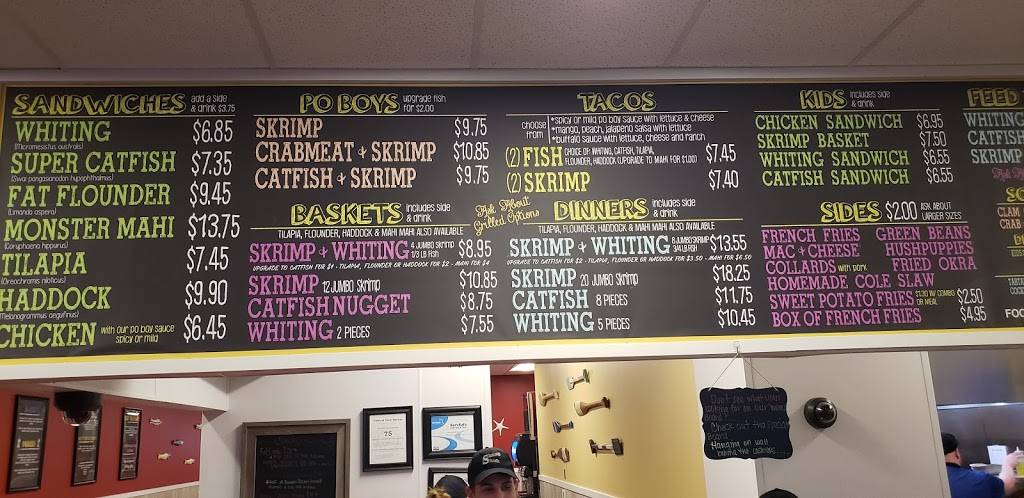 SANDWICHES add a side & drink $3.75
WHITING $6.85
SUPER CATFISH $7.35
FAT FLOUNDER $9.45
(Limanda aspera)
MONSTER MAHI $13.75
(Coryphaena hippurus)
TILAPIA $7.45
HADDOCK $9.90
CHICKEN with our po boy sauce spicy or mild $6.45
PO BOYS upgrade fish for $2.00
SKRIMP $9.75
CRABMEAT & SKRIMP $10.85
CATFISH & SKRIMP $9.75
TACOS
choose from
*spicy or mild po boy sauce with lettuce & cheese
*mango, peach, jalapeno salsa with lettuce
*buffalo sauce with lettuce, cheese and ranch
(2) FISH (CHOICE OF: WHITING, CATFISH, TILAPIA, FLOUNDER, HADDOCK (UPGRADE TO MAHI FOR $1.00) $7.45
(2) SKRIMP $7.40
Ask About Grilled Options
BASKETS includes side & drink
TILAPIA, FLOUNDER, HADDOCK & MAHI MAHI ALSO AVAILABLE
SKRIMP & WHITING 4 JUMBO SKRIMP 1/3 LB FISH $8.95
UPGRADE TO CATFISH FOR $1 - TILAPIA, FLOUNDER OR HADDOCK FOR $2 - MAHI FOR $4
SKRIMP 12 JUMBO SKRIMP $10.85
CATFISH NUGGET $8.75
WHITING 2 PIECES $7.55
DINNERS includes side & drink
TILAPIA, FLOUNDER, HADDOCK & MAHI MAHI ALSO AVAILABLE
SKRIMP & WHITING 8 JUMBO SKRIMP 3/4 LB FISH $13.55
UPGRADE TO CATFISH FOR $2 - TILAPIA, FLOUNDER OR HADDOCK FOR $3.50 - MAHI FOR $6.50
SKRIMP 20 JUMBO SKRIMP $18.25
CATFISH 8 PIECES $11.75
WHITING 5 PIECES $10.45
KIDS includes side & drink
CHICKEN SANDWICH $6.95
SKRIMP BASKET $7.50
WHITING SANDWICH $6.55
CATFISH SANDWICH $6.55
SIDES $2.00 ASK ABOUT LARGER SIZES
FRENCH FRIES GREEN BEANS
MAC & CHEESE HUSHPUPPIES
COLLARDS with pork FRIED OKRA
HOMEMADE COLE SLAW
SWEET POTATO FRIES $1.30 W/ COMBO OR MEAL $2.50
BOX OF FRENCH FRIES $4.95
FEED
WHITING
CATFISH
SKRIMP
CLAM
CRAB
75
Don't see what your looking for on our menu board?
Check out the Special Board
Hanging on wall behind the cashiers